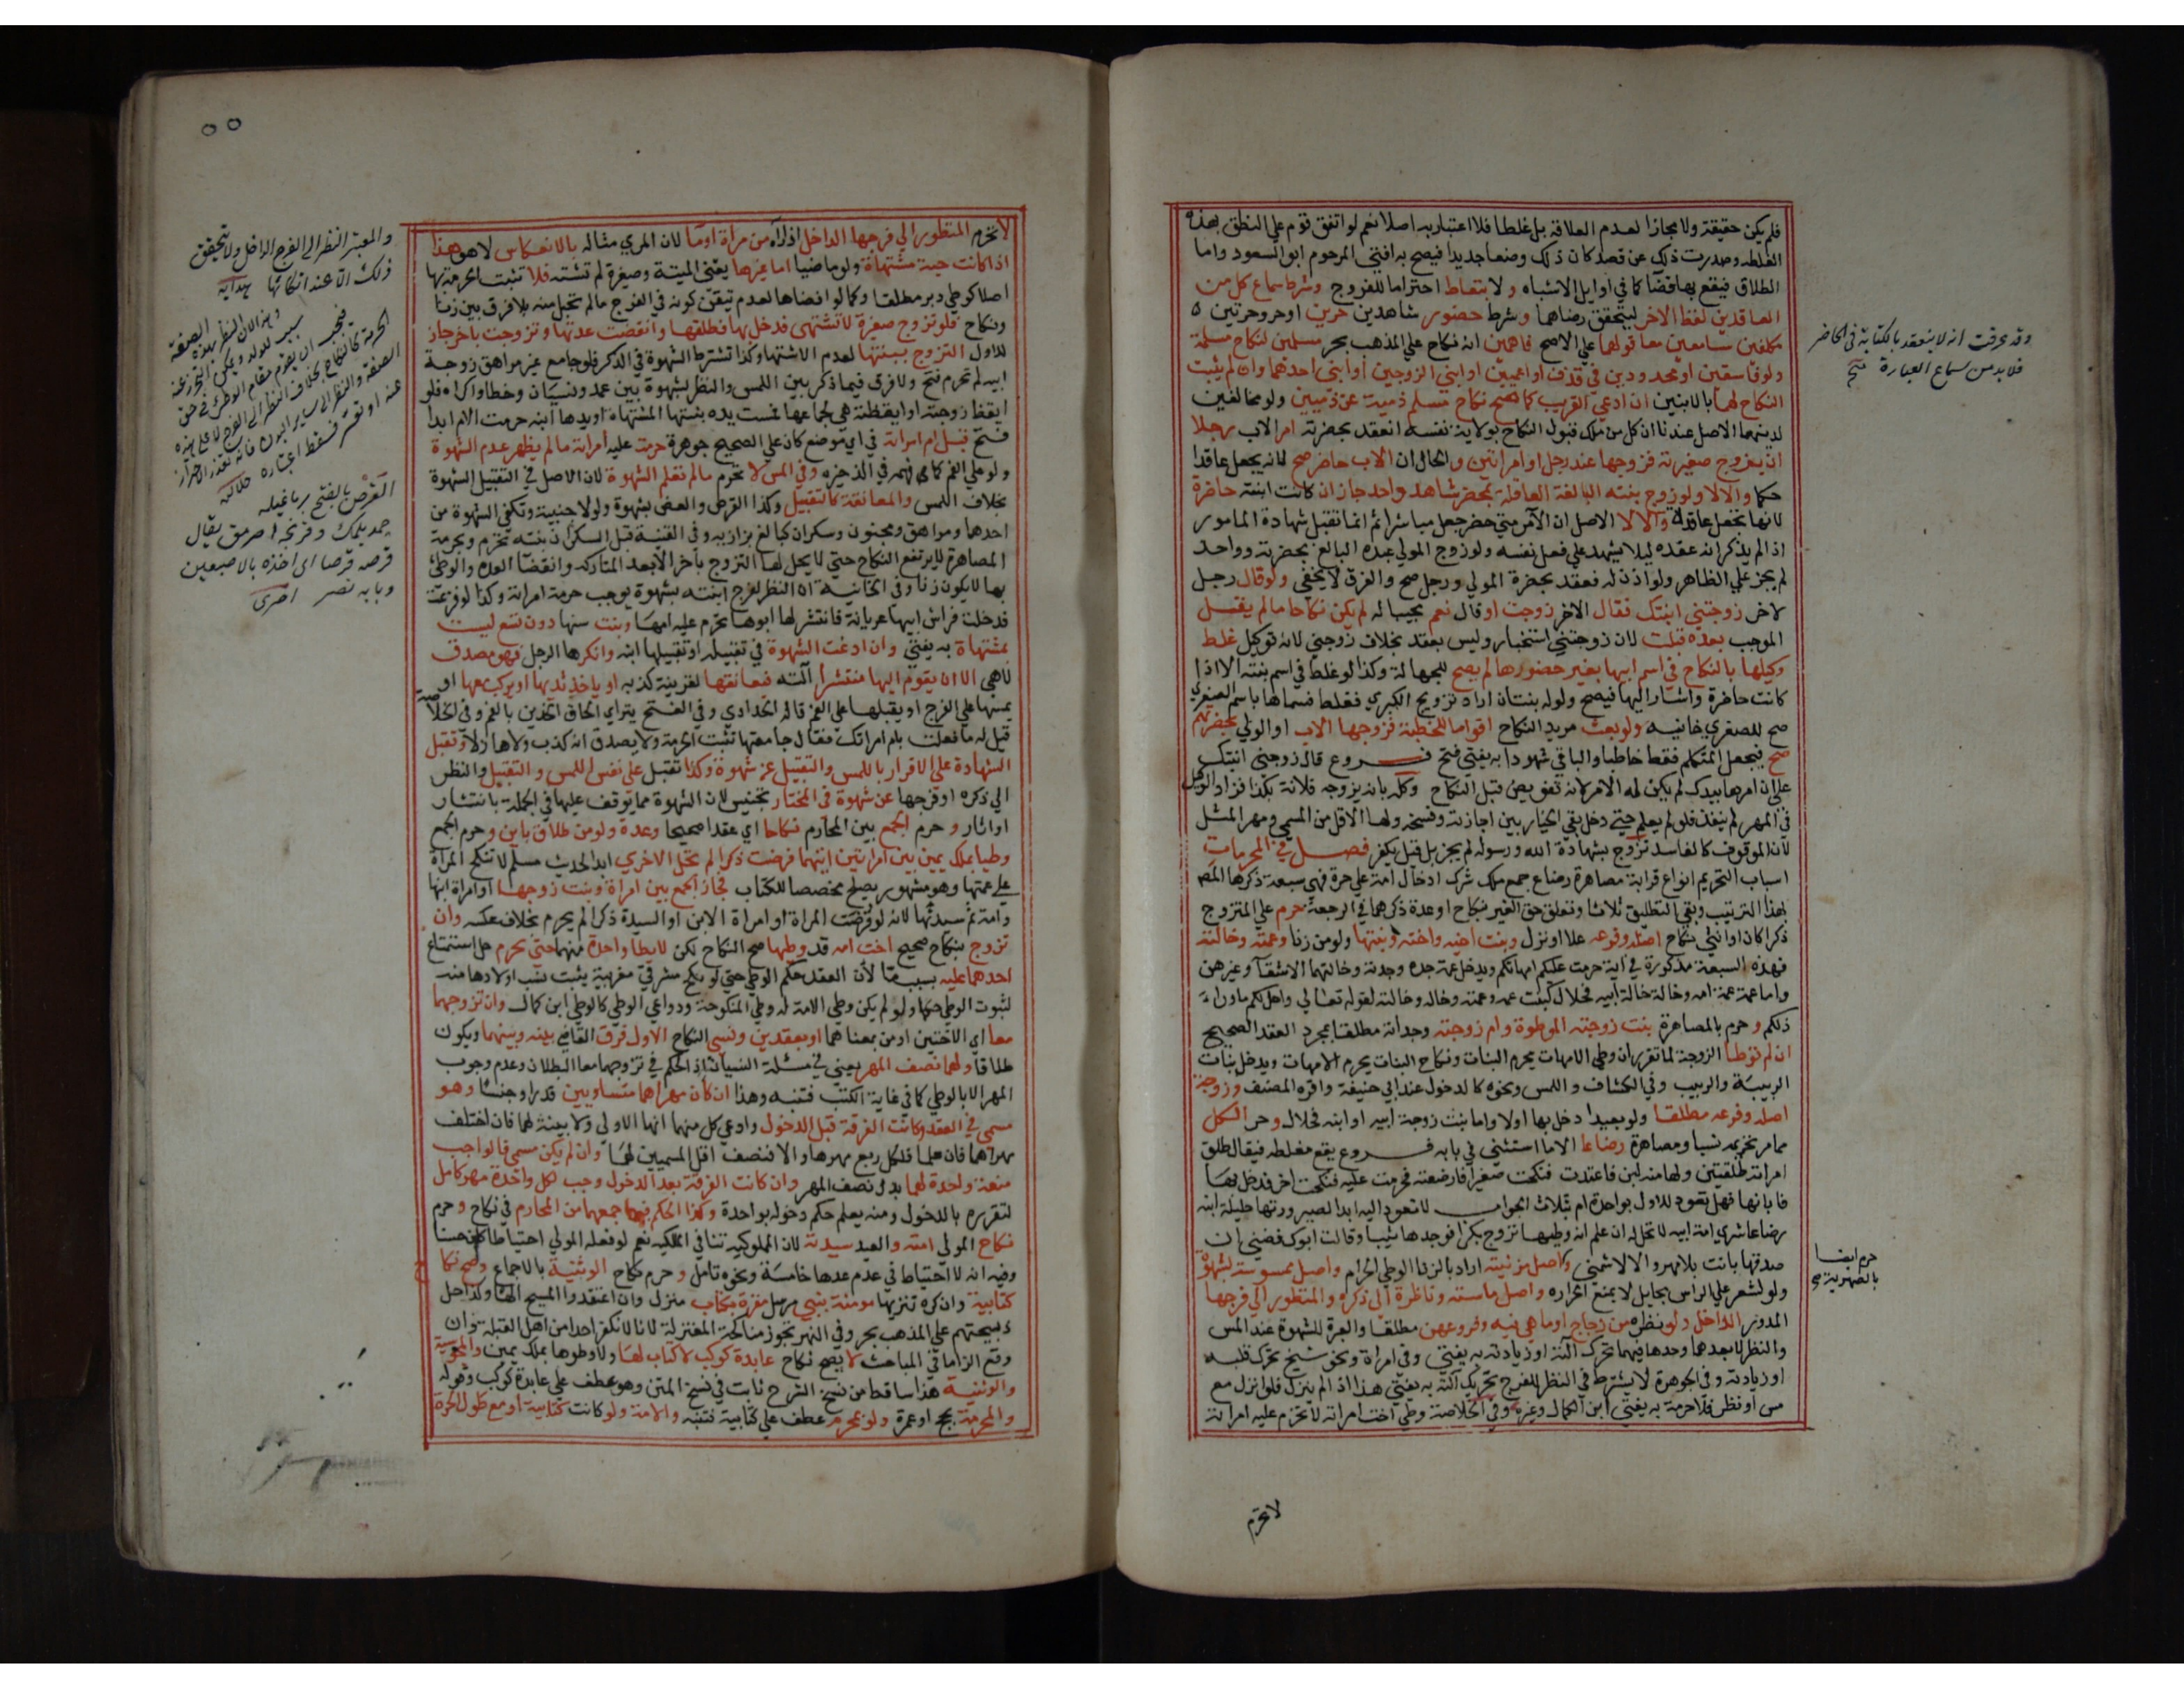 فلم يكن حقيقة ولا مجازا لعدم العلاقة بل غلطا فلا اعتبار به اصلا نعم لو اتفق قوم علي النطق بهذه
الغلطه وصدرت ذلك عن قصد كان ذلك وضعا جديدا فيصح به افتي المرحوم ابو السعود واما
الطلاق فيقع بها قضا كما في اوايل الاشباه ولا بتعاط احتراما للفروج وشرط سماع كل من
العاقدين لفظ الاخر ليتحقق رضاهما وشرط حضور شاهدين حرين او حر وحرتين
مكلفين سامعين معا قولهما علي الاصح فاهمين انه نكاح علي المذهب بحر مسلمين لنكاح مسلمة
ولو فاسقين او محدودين في قذف او اعميين او ابني الزوجين او ابني احدهما وان لم يثبت
النكاح لهما بالابنين ان ادعي القريب كما صح نكاح مسلم ذمية عند ذميين ولو مخالفين
لدينهما الاصل عندنا ان كل من ملك قبول النكاح بولاية نفسه انعقد بحضرته امر الاب رجلا
ان يزوج صغيرته فزوجها عند رجل او امراتين والحال ان الاب حاضر صح لانه يجعل عاقدا
حكما والا لا ولو زوج بنته البالغة العاقلة بمحضر شاهد واحد جاز ان كانت ابنته حاضرة
لانها تجعل عاقدة والا لا الاصل ان الامر متي حضر جعل مباشرا ثم انما تقبل شهادة المامور
اذا لم يذكر انه عقده ليلا يشهد علي فعل نفسه ولو زوج المولي عبده البالغ بحضرته وواحد
لم يجز علي الظاهر ولو اذن له فعقد بحضرة المولي ورجل صح والفرق لا يخفي ولو قال رجل
لاخر زوجتني ابنتك فقال الاخر زوجت او قال نعم مجيبا له لم يكن نكاحا ما لم يقل
الموجب بعده قبلت لان زوجتني استخبار وليس بعقد بخلاف زوجني لانه توكيل غلط
وكيلها بالنكاح في اسم ابيها بغير حضورها لم يصح للجهالة وكذا لو غلط في اسم بنته الا اذا
كانت حاضرة واشار اليها فيصح ولو له بنتان اراد تزويج الكبري فغلط فسماها باسم الصغري
صح للصغري خانيه ولو بعث مريد النكاح اقواما للخطبة فزوجها الاب او الولي بحضرتهم
صح فيجعل المتكلم فقط خاطبا والباقي شهودا به يفتي فتح فروع قال زوجني ابنتك
علي ان امرها بيدك لم يكن له الامر لانه تفويض قبل النكاح وكله بان يزوجه فلانة بكذا فزاد الوكيل
في المهر لم ينفذ فلو لم يعلم حتي دخل بقي الخيار بين اجازته وفسخه ولها الاقل من المسمي ومهر المثل
لان الموقوف كالفاسد تزوج بشهادة الله ورسوله لم يجز بل قيل يكفر فصل في المحرمات
اسباب التحريم انواع قرابة مصاهرة رضاع جمع ملك شرك ادخال امة علي حرة فهي سبعة ذكرها المص
بهذا الترتيب وبقي التطليق ثلاثا وتعلق حق الغير بنكاح او عدة ذكرهما في الرجعة حرم علي المتزوج
ذكرا كان او انثي نكاح اصله وفروعه علا او نزل وبنت اخيه واخته وبنتها ولو من زنا وعمته وخالته
فهذه السبعة مذكورة في اية حرمت عليكم امهاتكم ويدخل عمة جده وجدته وخالتهما الاشقا وغيرهن
واما عمة عمة امه وخالة خالة ابيه فحلال كبنت عمه وعمته وخاله وخالته لقوله تعالي واحل لكم ما وراء
ذلكم وحرم بالمصاهرة بنت زوجته الموطوة وام زوجته وجداته مطلقا بمجرد العقد الصحيح
ان لم توطا الزوجة لما تقرر ان وطي الامهات يحرم البنات ونكاح البنات يحرم الامهات ويدخل بنات
الربيبة والربيب وفي الكشاف واللمس ونحوه كالدخول عند ابي حنيفة واقره المصنف وزوجة
اصله وفرعه مطلقا ولو بعيدا دخل بها اولا واما بنت زوجة ابيه او ابنه فحلال وحرم الكل
مما مر تحريمه نسبا ومصاهرة رضاعا الا ما استثني في بابه فروع يقع مغلطه فيقال طلق
امراته طلقتين ولها منه لبن فاعتدت فنكحت صغيرا فارضعته فحرمت عليه فنكحت اخر فدخل بها
فابانها فهل تعود للاول بواحدة ام بثلاث الجواب لا تعود اليه ابدا لصيرورتها حليلة ابنه
رضاعا شري امة ابيه لا تحل له ان علم انه وطيها تزوج بكرا فوجدها ثيبا وقالت ابوك فضني ان
صدقها بانت بلا مهر والا لا شمني واصل مزنيته اراد بالزنا الوطي الحرام واصل ممسوسته بشهوة
ولو لشعر علي الراس بحايل لا يمنع الحراره واصل ماسته وناظرة الي ذكره والمنظور الي فرجها
المدور الداخل ولو نظره من زجاج او ما هي فيه وفروعهن مطلقا والعبرة للشهوة عند المس
والنظر لا بعدها وحدها فيهما تحرك آلته او زيادته به يفتي وفي امراة ونحو شيخ تحرك قلبه
او زيادته وفي الجوهرة لا يشترط في النظر للفرج تحريك آلته به يفتي هذا اذا لم ينزل فلو انزل مع
مس او نظر فلا حرمة به يفتي ابن الكمال وغيره وفي الخلاصة وطي اخت امراته لا تحرم عليه امراته
لا تحرم
وقد عرفت انه لا ينعقد بالكتابة في الحاضر
فلا بد من سماع العبارة فتح
حرم ايضا
بالصهرية صح
٥٥
لا تحرم المنظور الي فرجها الداخل اذا رآه من مرآة او ما لان المري مثاله بالانعكاس لا هو هذا
اذا كانت حية مشتهاة ولو ماضيا اما غيرها يعني الميتة وصغيرة لم تشته فلا تثبت الحرمة بها
اصلا كوطي دبر مطلقا وكما لو افضاها لعدم تيقن كونه في الفرج ما لم تحبل منه بلا فرق بين زنا
ونكاح فلو تزوج صغيرة لا تشتهي فدخل بها فطلقها وانقضت عدتها وتزوجت باخر جاز
للاول التزوج ببنتها لعدم الاشتها وكذا تشترط الشهوة في الذكر فلو جامع غير مراهق زوجة
ابيه لم تحرم فتح ولا فرق فيما ذكر بين اللمس والنظر بشهوة بين عمد ونسيان وخطا واكراه فلو
ايقظ زوجته او ايقظته هي لجماعها فمست يده بنتها المشتهاة او يدها ابنه حرمت الام ابدا
فتح قبل ام امراته في اي موضع كان علي الصحيح جوهرة حرمت عليه امراته ما لم يظهر عدم الشهوة
ولو علي الفم كما فهمه في الذخيره وفي المس لا تحرم ما لم تعلم الشهوة لان الاصل في التقبيل الشهوة
بخلاف اللمس والمعانقة كالتقبيل وكذا القرص والعض بشهوة ولو لاجنبية وتكفي الشهوة من
احدهما ومراهق ومجنون وسكران كبالغ بزازيه وفي القنية قبل السكران بنته تحرم وبحرمة
المصاهرة لا يرتفع النكاح حتي لا يحل لها التزوج باخر الا بعد المتاركه وانقضا العده والوطئ
بها لا يكون زنا وفي الخانية ان النظر لفرج ابنته بشهوة يوجب حرمة امراته وكذا لو فزعت
فدخلت فراش ابيها عريانة فانتشر لها ابوها تحرم عليه امها وبنت سنها دون تسع ليست
بمشتهاة به يفتي وان ادعت الشهوة في تقبيله او تقبيلها ابنه وانكرها الرجل فهو مصدق
لا هي الا ان يقوم اليها منتشرا آلته فيعانقها لقرينة كذبه او ياخذ ثديها او يركب معها او
يمسها علي الفرج او يقبلها علي الفم قاله الحدادي وفي الفتح يتراي الحاق الخدين بالفم وفي الخلاصة
قيل له ما فعلت بام امراتك فقال جامعتها تثبت الحرمة ولا يصدق انه كذب ولو هازلا وتقبل
الشهادة علي الاقرار باللمس والتقبيل عن شهوة وكذا تقبل علي نفس اللمس والتقبيل والنظر
الي ذكره او فرجها عن شهوة في المختار تجنيس لان الشهوة مما يوقف عليها في الجملة بانتشار
او اثار وحرم الجمع بين المحارم نكاحا اي عقدا صحيحا وعدة ولو من طلاق باين وحرم الجمع
وطيا بملك يمين بين امراتين ايتهما فرضت ذكرا لم تحل الاخري ابدا لحديث مسلم لا تنكح المراة
علي عمتها وهو مشهور يصلح مخصصا للكتاب فجاز الجمع بين امراة وبنت زوجها او امراة ابنها
وامة ثم سيدتها لانه لو فرضت المراة او امراة الابن او السيدة ذكرا لم يحرم بخلاف عكسه وان
تزوج بنكاح صحيح اخت امه قد وطيها صح النكاح لكن لا يطا واحدة منهما حتي يحرم حل استمتاع
احدهما عليه بسبب ما لان العقد حكم الوطي حتي لو نكح مشرقي مغربية يثبت نسب اولادها منه
لثبوت الوطي حكما ولو لم يكن وطي الامة له وطي المنكوحة ودواعي الوطي كالوطي ابن كمال وان تزوجهما
معا اي الاختين او من بمعناهما او بعقدين ونسي النكاح الاول فرق القاضي بينه وبينهما ويكون
طلاقا ولهما نصف المهر يعني في مسئلة النسيان اذ الحكم في تزوجهما معا البطلان وعدم وجوب
المهر الا بالوطي كما في عامة الكتب فتنبه وهذا ان كان مهراهما متساويين قدرا وجنسا وهو
مسمي في العقد وكانت الفرقة قبل الدخول وادعي كل منهما انها الاولي ولا بينة لهما فان اختلف
مهراهما فان علما فلكل ربع مهرها والا فنصف اقل المسميين لهما وان لم يكن مسمي فالواجب
متعة واحدة لهما بدل نصف المهر وان كانت الفرقة بعد الدخول وجب لكل واحدة مهر كامل
لتقرره بالدخول ومنه يعلم حكم دخوله بواحدة وكذا الحكم فيما جمعهما من المحارم في نكاح وحرم
نكاح المولي امته والعبد سيدته لان المملوكيه تنافي المالكيه نعم لو فعله المولي احتياطا كان حسنا
وفيه انه لا احتياط في عدم عدها خامسة ونحوه تامل وحرم نكاح الوثنية بالاجماع وصح نكاح
كتابية وان كره تنزيها مومنة بنبي مرسل مقرة بكتاب منزل وان اعتقدوا المسيح الها وكذا حل
ذبيحتهم علي المذهب بحر وفي النهر تجوز مناكحة المعتزلة لانا لا نكفر احدا من اهل القبلة وان
وقع الزاما في المباحث لا يصح نكاح عابدة كوكب لا كتاب لها ولا وطوها بملك يمين والمجوسية
والوثنية هذا ساقط من نسخ الشرح ثابت في نسخ المتن وهو عطف علي عابدة كوكب وقوله
والمحرمة بحج او عمرة ولو بمحرم عطف علي كتابية فتنبه والامة ولو كانت كتابية او مع طول الحرة
والمعتبر النظر الي الفرج الداخل ولا يتحقق
ذلك الا عند اتكائها هدايه
القرص بالفتح برماغيله
چمديلمك وقرنجه اصرمق يقال
قرصه قرصا اي اخذه بالاصبعين
وبابه نصر اخترى